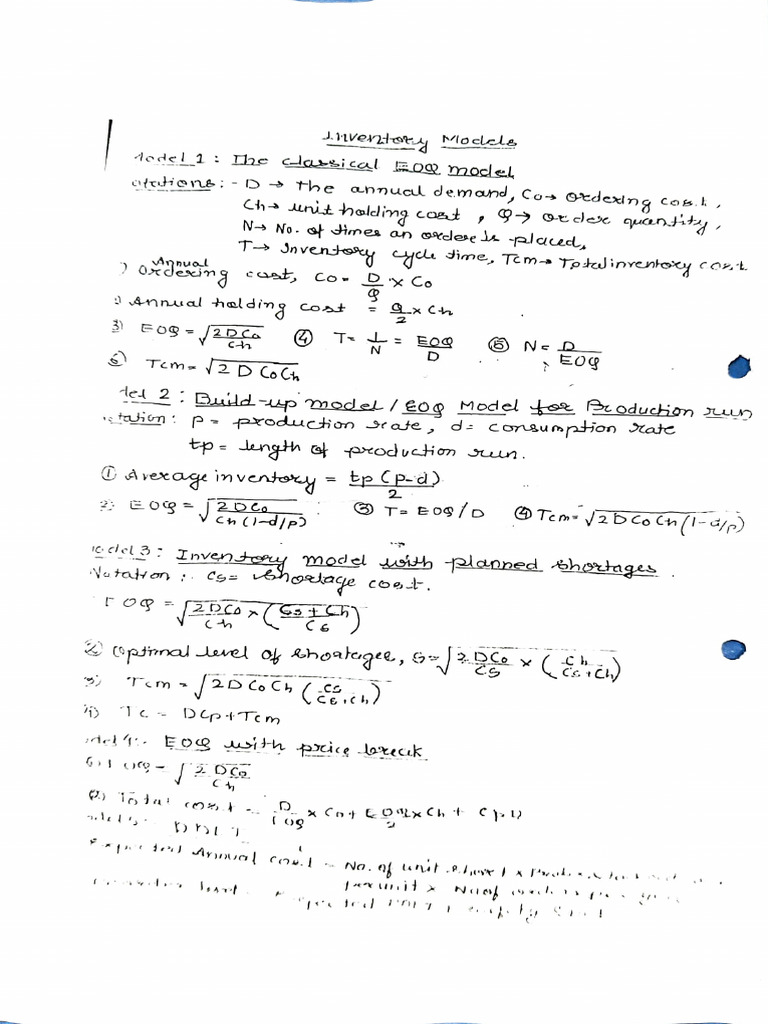 Inventory Models
Model 1: The classical EOQ model
Notations:- D → The annual demand, Co → ordering cost,
Ch → unit holding cost, Q → order quantity,
N → No. of times an order is placed,
T → Inventory cycle time, Tcm → Total inventory cost.
1) Annual Ordering cost, Co = D/Q × Co
2) Annual holding cost = Q/2 × Ch
3) EOQ = √(2DCo/Ch) ④ T = 1/N = EOQ/D ⑤ N = D/EOQ
6) Tcm = √(2 D Co Ch)
Model 2: Build-up model / EOQ Model for Production run
Notation: p = production rate, d = consumption rate
tp = length of production run.
① Average inventory = tp(p-d)/2
2) EOQ = √(2DCo/Ch(1-d/p)) ③ T = EOQ/D ④ Tcm = √(2DCoCh(1-d/p))
Model 3: Inventory model with planned shortages.
Notation: Cs = Shortage cost.
EOQ = √(2DCo/Ch × (Cs+Ch/Cs))
② Optimal level of shortages, S = √(2DCo/Cs × (Ch/Cs+Ch))
3) Tcm = √(2DCoCh(Cs/Cs+Ch))
4) Tc = DCp + Tcm
Model 4:- EOQ with price break
(1) EOQ = √(2DCo/Ch)
(2) Total cost = D/EOQ × Co + EOQ/2 × Ch + CpD
Expected Annual cost = No. of unit short ×
per unit × No. of orders per year